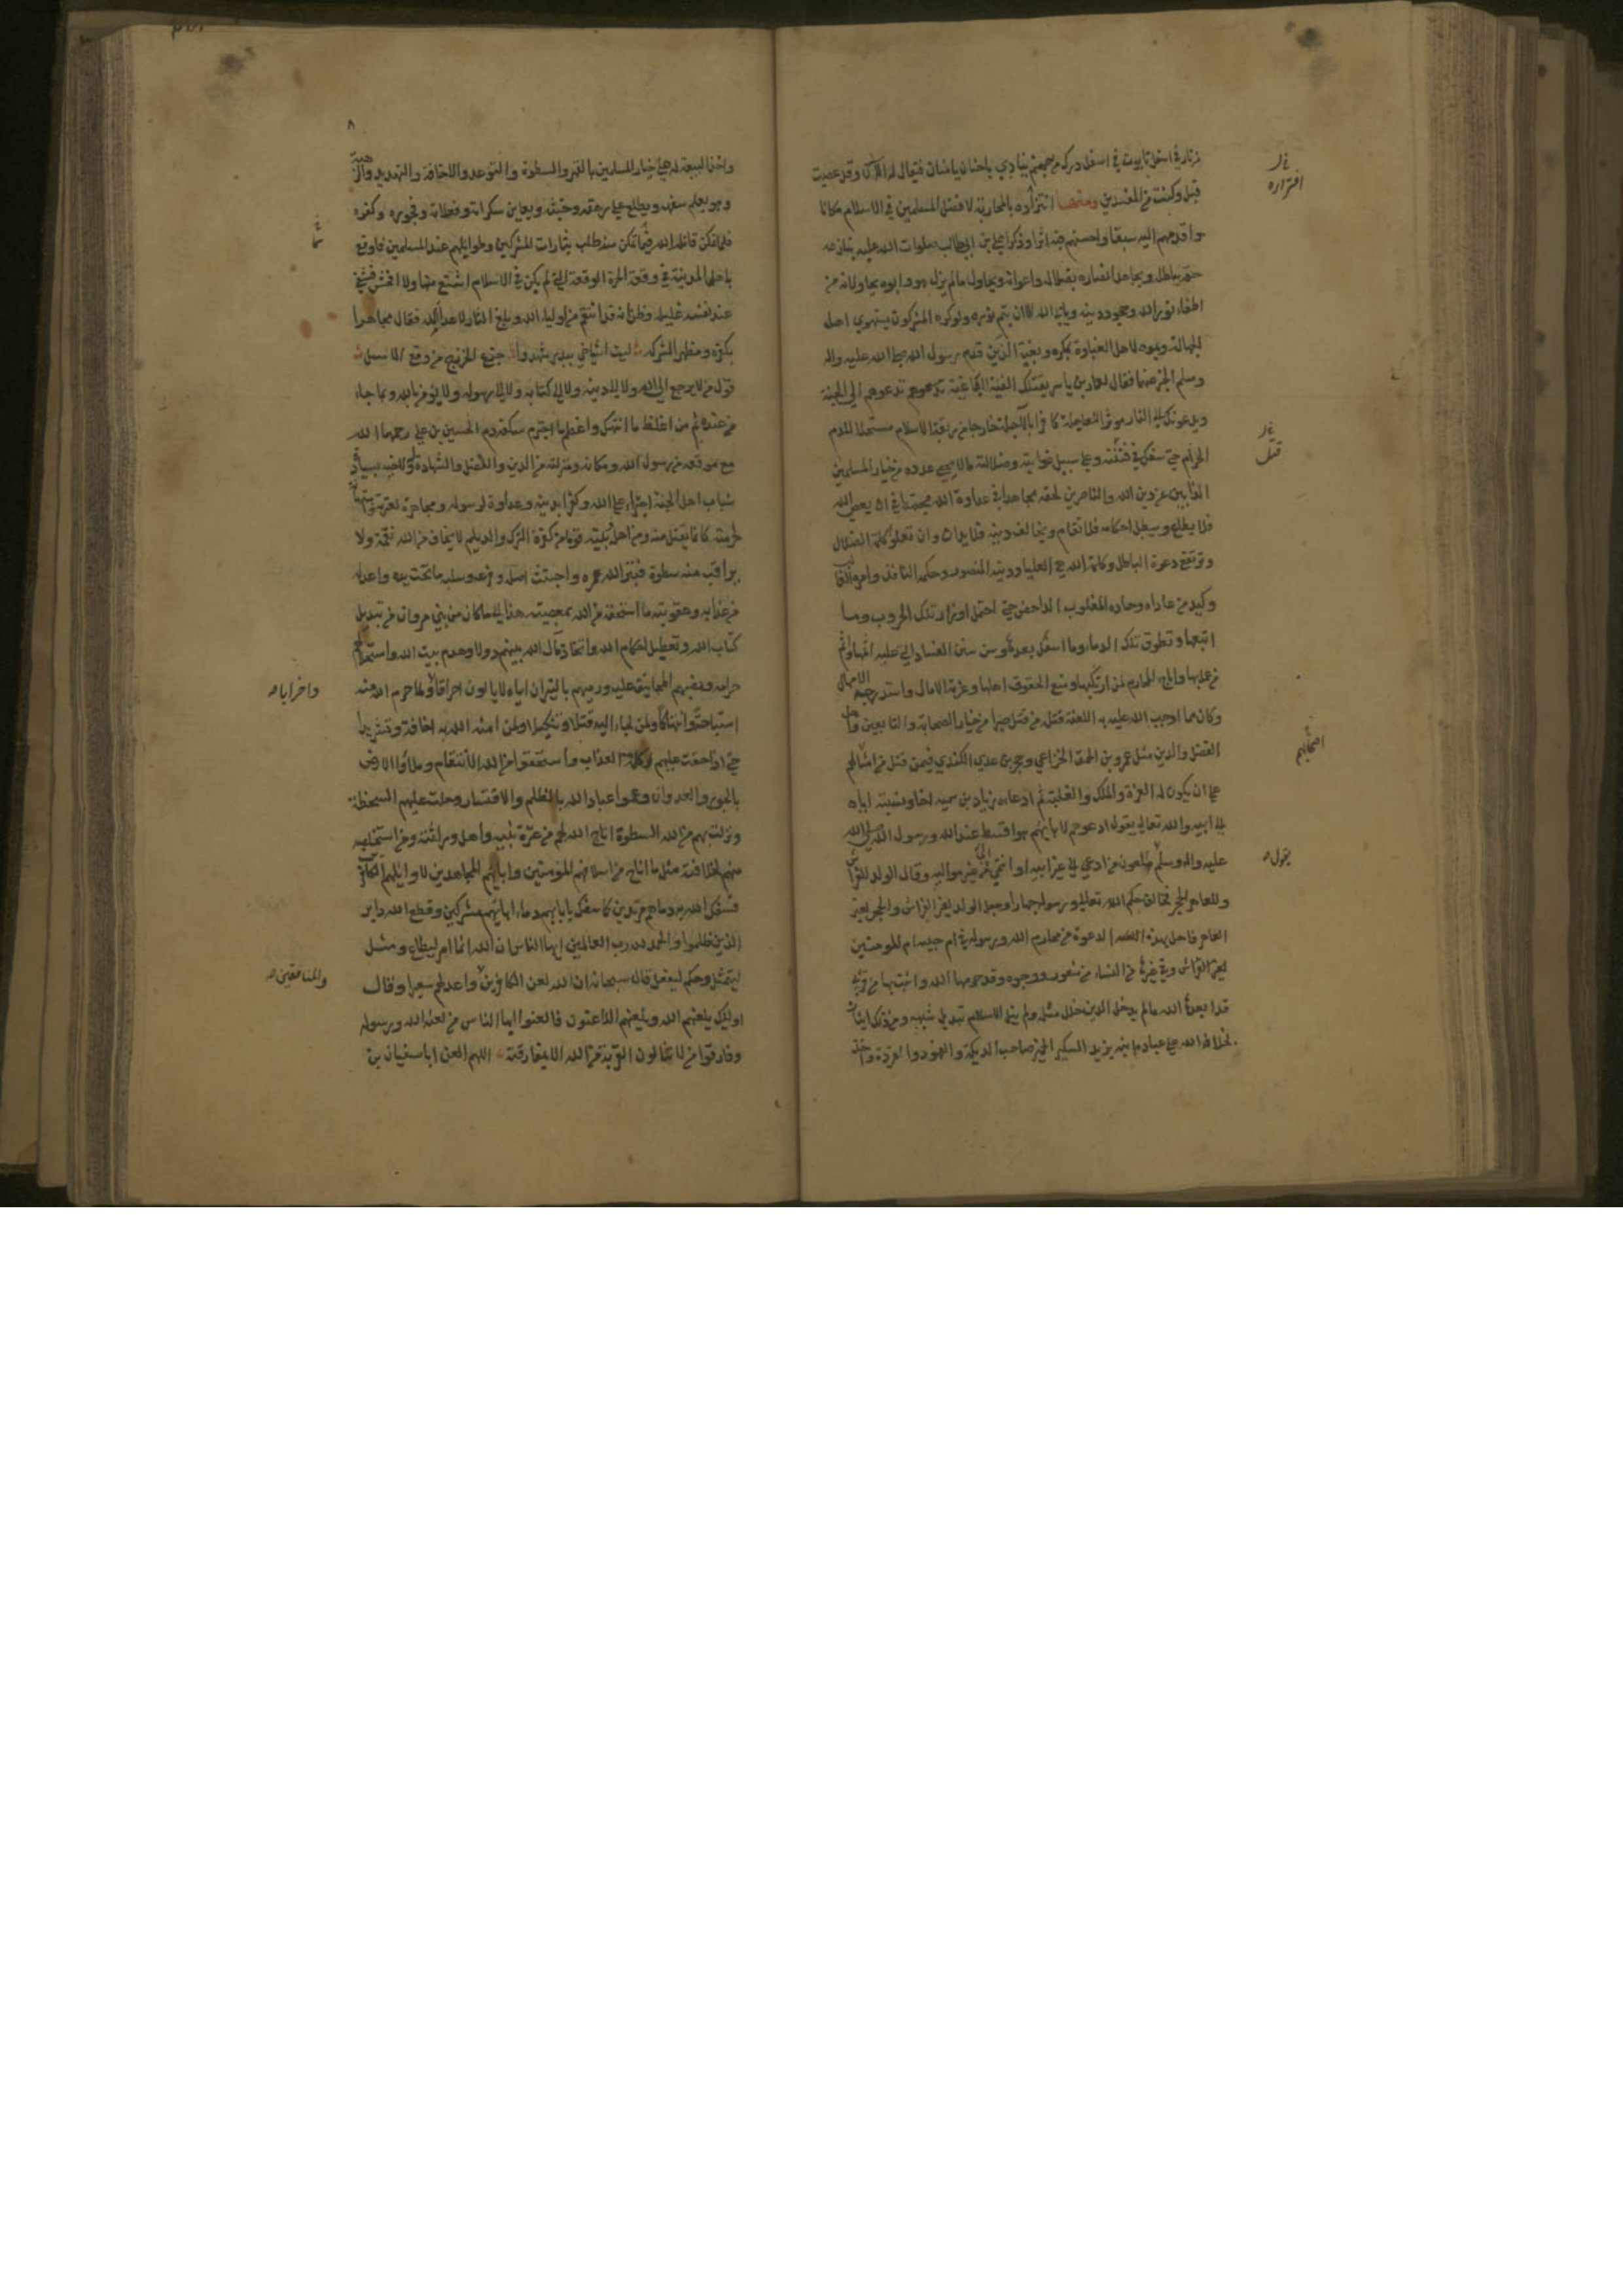 من نار في اسفل تابوت في اسفل درك من جهنم ينادي ياحنان يامنان فيقال له الآن وقد عصيت
قبل وكنت من المفسدين ومنها انتزاؤه بالمحاربة لافضل المسلمين في الاسلام مكانا
واقدمهم اليه سبقا واحسنهم فيه اثرا وذكرا علي بن ابي طالب صلوات الله عليه ينازعه
حقه بباطله ويجاهد انصاره بضلاله واعوانه ويحاول ما لم يزل هو وابوه يحاولانه من
اطفاء نور الله وجحود دينه ويابى الله الا ان يتم نوره ولو كره المشركون يستهوي اهل
الجهالة ويموه لاهل الغباوة بمكره وبغيه الذين قدم رسول الله صلى الله عليه واله
وسلم الخبر عنهما فقال لعمار بن ياسر يقتلك الفئة الباغية تدعوهم الى الجنة
ويدعونك الى النار موثرا للعاجلة كافرا بالآجلة خارجا من ربقة الاسلام مستحلا للدم
الحرام حتى سفك في فتنته وعلى سبيل غوايته وضلالته ما لا يحصى عدده من خيار المسلمين
الذابين عن دين الله والناصرين لحقه مجاهدا في عداوة الله مجتهدا في ان يعصى الله
فلا يطاع ويبطل احكامه فلا تقام ويخالف دينه فلا يدان وان تعلو كلمة الضلال
وترتفع دعوة الباطل وكلمة الله هي العليا ودينه المنصور وحكمه النافذ وامره الغالب
وكيد من عاداه وحاده المغلوب الداحض حتى احتمل اوزار تلك الحروب وما
اتبعها وتطوق تلك الدماء وما سفك بعدها وسن سنن الفساد التي عليه اثمها واثم
من عمل بها واباح المحارم لمن ارتكبها ومنع الحقوق اهلها وغرته الآمال واستدرجه الامهال
وكان مما اوجب الله عليه به اللعنة قتله من قتل صبرا من خيار الصحابة والتابعين واهل
الفضل والدين مثل عمرو بن الحمق الخزاعي وحجر بن عدي الكندي فيمن قتل من امثالهم
على ان يكون له العزة والملك والغلبة ثم ادعاءه زياد بن سمية اخا ونسبته اياه
الى ابيه والله تعالى يقول ادعوهم لابائهم هو اقسط عند الله ورسول الله صلى الله
عليه واله وسلم ملعون من ادعى الى غير ابيه او انتمى الى غير مواليه وقال الولد للفراش
وللعاهر الحجر فخالف حكم الله تعالى ورسوله جهارا وجعل الولد لغير الفراش والحجر لغير
العاهر فاحل بهذه الدعوة من محارم الله ورسوله في ام حبيبة ام المومنين
لغير الفراش وفي غيرها من النساء من شعور ووجوه وقد حرمها الله واثبت بها من قربى
قد ابعدها الله ما لم يدخل الدين خلل مثله ولم ينل الاسلام تبديل شبهه ومن ذلك ايثاره
لخلافة الله على عباده ابنه يزيد السكير الخمير صاحب الديكة والفهود والقردة واخذ
غار
افتراره
غار
قتل
اضحابهم
يقول صح
٨
واخذ البيعة له على خيار المسلمين بالقهر والسطوة والتوعد والاخافة والتهديد والرهبة
وهو يعلم سفهه ويطلع على رهقه وخبثه ويعاين سكراته وفعلاته وفجوره وكفره
فلما تمكن قاتله الله فيما تمكن منه طلب بثارات المشركين وطوايلهم عند المسلمين فاوقع
باهل المدينة في وقعة الحرة الوقعة التي لم يكن في الاسلام اشنع منها ولا افحش فشفى
عند نفسه غليله وظن انه قد انتقم من اولياء الله وبلغ الثار لاعداء الله فقال مجاهرا
بكفره ومظهرا لشركه ليت اشياخي ببدر شهدوا جزع الخزرج من وقع الاسل
قول من لا يرجع الى الله ولا الى دينه ولا الى كتابه ولا الى رسوله ولا يؤمن بالله وبما جاء
من عنده ثم من اغلظ ما انتهك واعظم ما اجترم سفكه دم الحسين بن علي رحمهما الله
مع موقعه من رسول الله ومكانه ومنزلته من الدين والفضل والشهادة له ولاخيه بسيادة
شباب اهل الجنة اجتراء على الله وكفرا بدينه وعداوة لرسوله ومجاهرة لعترته واستهانة
لحرمته كانما يقتل منه ومن اهل بيته قوما من كفرة الترك والديلم لا يخاف من الله نقمة ولا
يراقب منه سطوة فبتر الله عمره واجتث اصله وفرعه وسلبه ما تحت يده واعد له
من عذابه وعقوبته ما استحقه من الله بمعصيته هذا الى ما كان من بني مروان من تبديل
كتاب الله وتعطيل احكام الله واتخاذ مال الله بينهم دولا وهدم بيت الله واستحلالهم
حرامه ونصبهم المجانيق عليه ورميهم بالنيران اياه لا يالون احراقا ولما حرم الله منه
استباحة وانتهاكا ولمن لجاء اليه قتلا وتنكيلا ولمن امنه الله به اخافة وتشريدا
حتى اذا حقت عليهم كلمة العذاب واستحقوا من الله الانتقام وملأوا الارض
بالجور والعدوان وعموا عباد الله بالظلم والاقتسار وحلت عليهم السخطة
ونزلت بهم من الله السطوة اتاح الله لهم من عترة نبيه واهل وراثته ومن استخلصه
منهم لخلافته مثل ما اتاح من اسلافهم المؤمنين وابائهم المجاهدين لاوايلهم الكافرين
فسفك الله به دماءهم مرتدين كما سفك بابائهم دماء ابائهم مشركين وقطع الله دابر
الذين ظلموا والحمد لله رب العالمين ايها الناس ان الله انما امر ليطاع ومثل
ليتمثل وحكم ليفعل قال سبحانه ان الله لعن الكافرين واعد لهم سعيرا وقال
اوليك يلعنهم الله ويلعنهم اللاعنون فالعنوا ايها الناس من لعنه الله ورسوله
وفارقوا من لا تنالون القربة من الله الا بمفارقته اللهم العن اباسفيان بن
واخرابا صح
والمنافقين صح